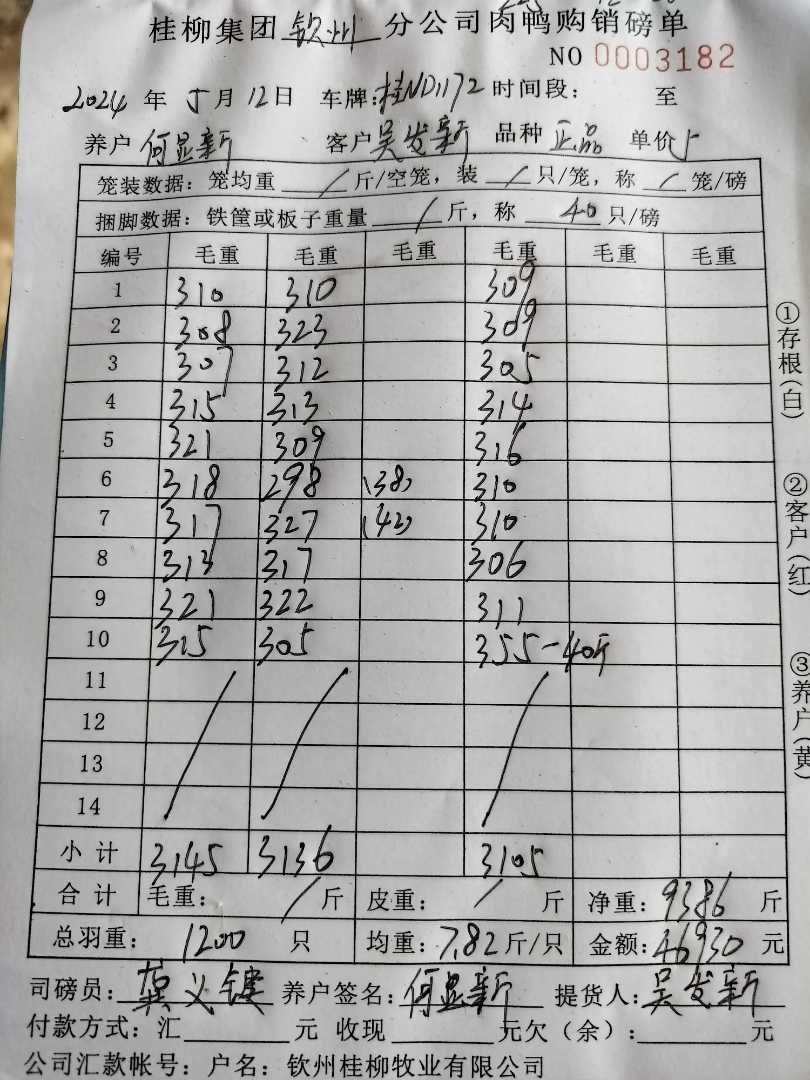 桂柳集团 钦州 分公司肉鸭购销磅单
NO 0003182
2024 年 5月 12日 车牌:桂ND1172 时间段: 至
养户 何显新 客户 吴发新 品种 正品 单价 5
笼装数据：笼均重 / 斤/空笼，装 / 只/笼，称 / 笼/磅
捆脚数据：铁筐或板子重量 / 斤，称 40 只/磅
编号 毛重 毛重 毛重 毛重 毛重 毛重
1 310 310 309
2 308 323 309
3 307 312 305
4 315 313 314
5 321 309 316
6 318 298 (38) 310
7 317 327 (42) 310
8 313 317 306
9 321 322 311
10 315 305 355-40斤
11
12
13
14
小计 3145 3136 3105
合计 毛重: / 斤 皮重: / 斤 净重: 9386 斤
总羽重: 1200 只 均重: 7.82 斤/只 金额: 46930 元
司磅员: 义 养户签名: 何显新 提货人: 吴发新
付款方式：汇 元 收现 元欠（余）: 元
公司汇款帐号：户名：钦州桂柳牧业有限公司
①存根(白)
②客户(红)
③养户(黄